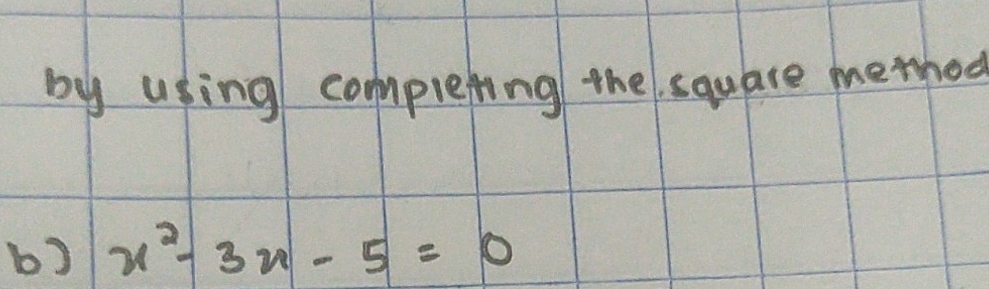 by using completing the square method
b) x² - 3x - 5 = 0